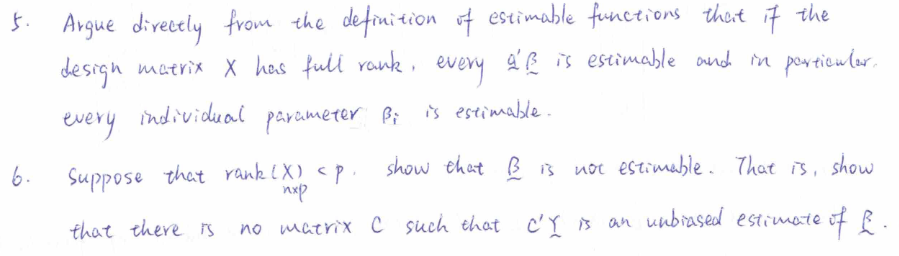 5. Argue directly from the definition of estimable functions that if the
design matrix X has full rank, every a'β is estimable and in particular.
every individual parameter βi is estimable.
6. Suppose that rank(X) < p. show that β is not estimable. That is, show
n×p
that there is no matrix C such that C'Y is an unbiased estimate of β.